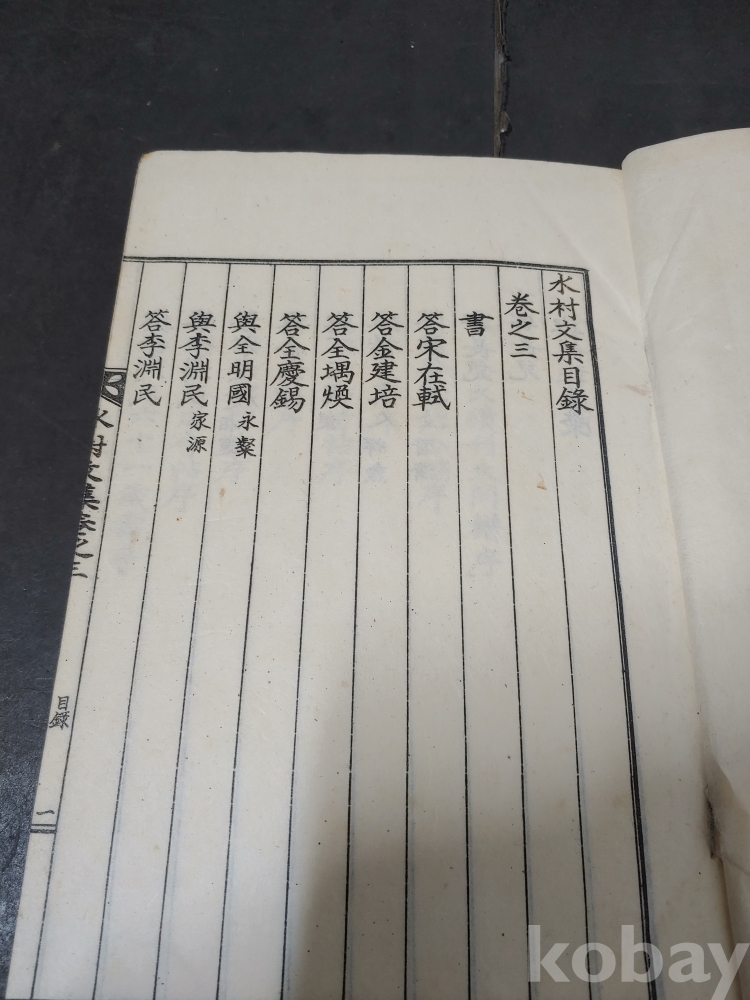 水村文集目錄
卷之三
書
答宋在軾
答金建培
答全堣煥
答全慶錫
與全明國 永粲
與李淵民 家源
答李淵民
水村文集卷之三
目錄
一
kobay